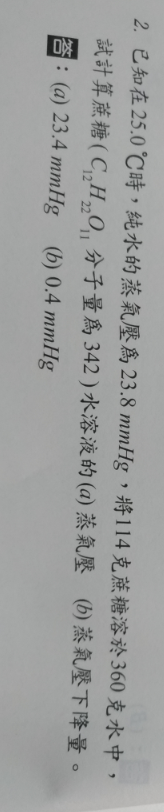 2. 已知在 25.0℃時，純水的蒸氣壓為 23.8 mmHg，將114 克蔗糖溶於 360 克水中，
試計算蔗糖 ( C₁₂H₂₂O₁₁ 分子量為 342 ) 水溶液的 (a) 蒸氣壓 (b) 蒸氣壓下降量。
答：(a) 23.4 mmHg (b) 0.4 mmHg